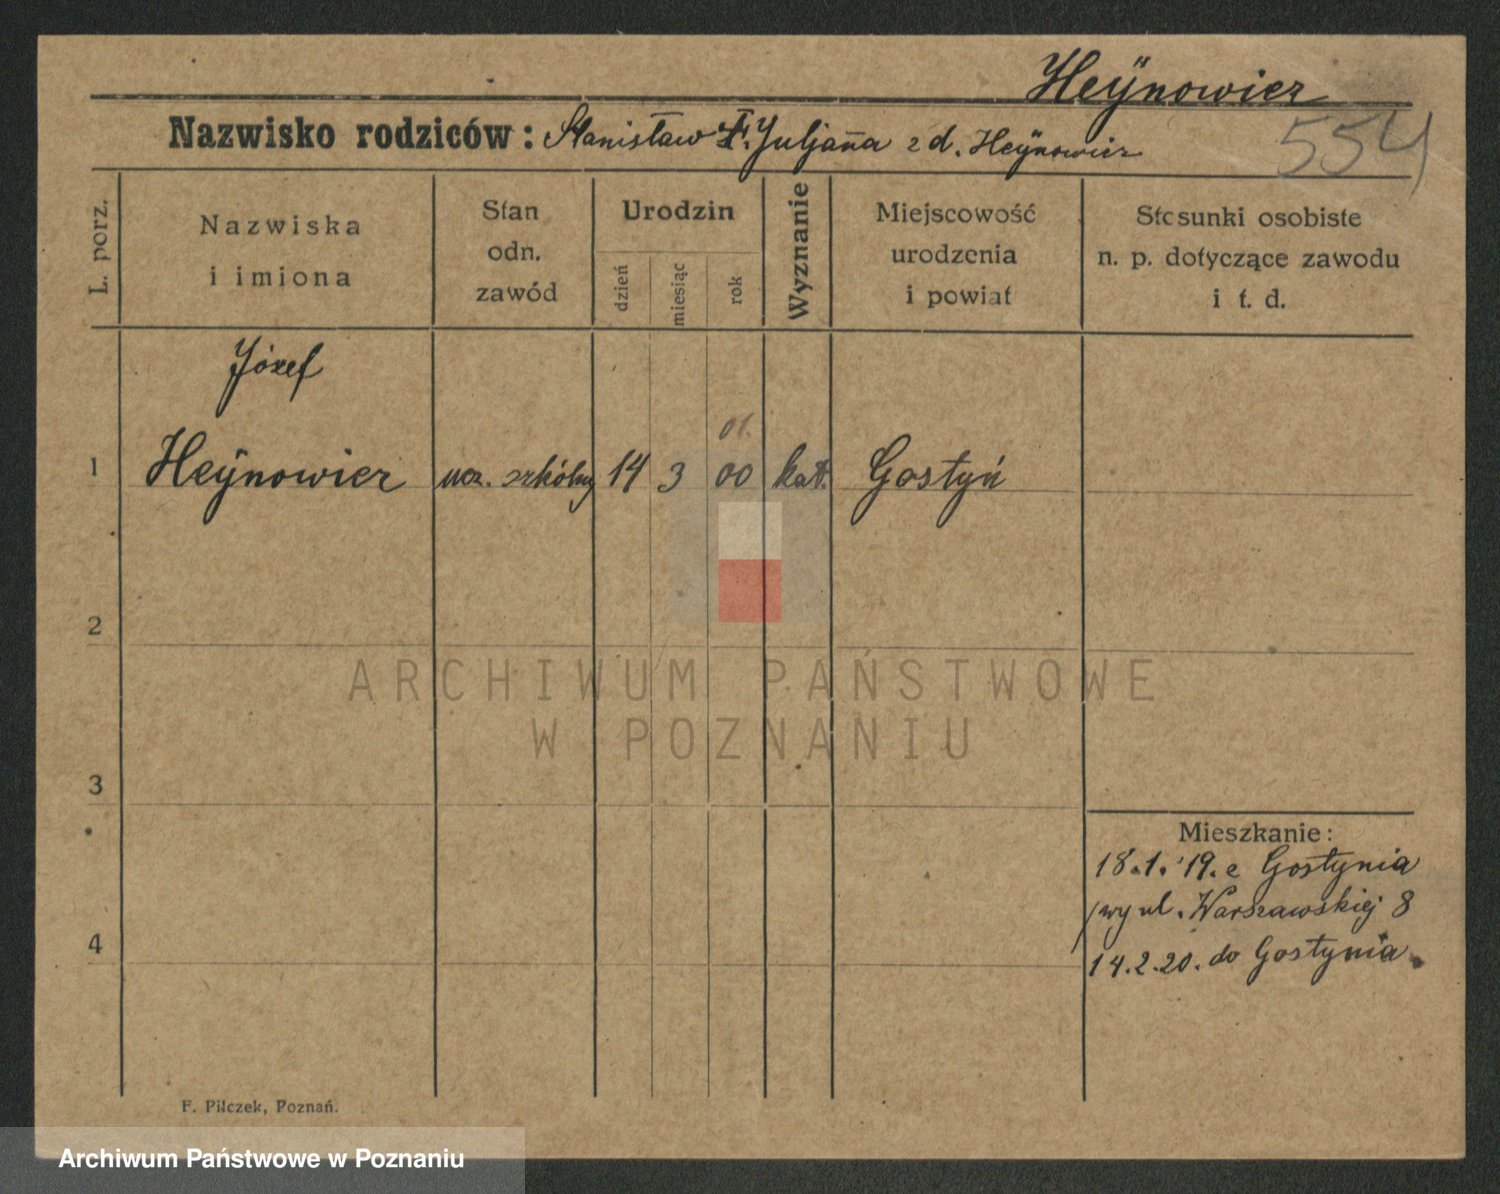 Heÿnowicz
554
Nazwisko rodziców: Stanisław Juljanna z d. Heÿnowicz
L. porz.
Nazwiska i imiona
Stan odn. zawód
Urodzin
dzień miesiąc rok
Wyznanie
Miejscowość urodzenia i powiat
Stosunki osobiste n. p. dotyczące zawodu i t. d.
Józef
01.
1 Heÿnowicz ucz. szkólny 14 3 00 kat. Gostyń
2
3
4
Mieszkanie:
18.1.'19. z Gostynia
ul. Warszawskiej 8
14.2.20. do Gostynia.
F. Pilczek, Poznań.
ARCHIWUM PAŃSTWOWE
W POZNANIU
Archiwum Państwowe w Poznaniu